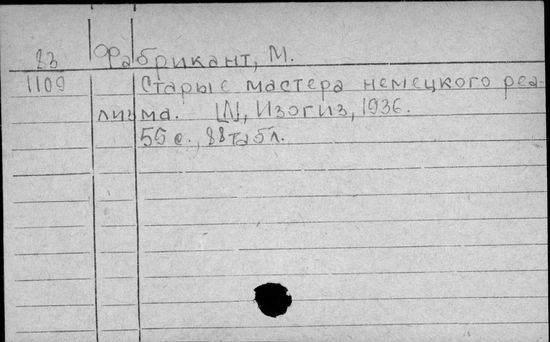 23 Фабрикант, М.
1109 Старые мастера немецкого реа-
лизма. Изогиз, 1936.
55 с., 88 табл.